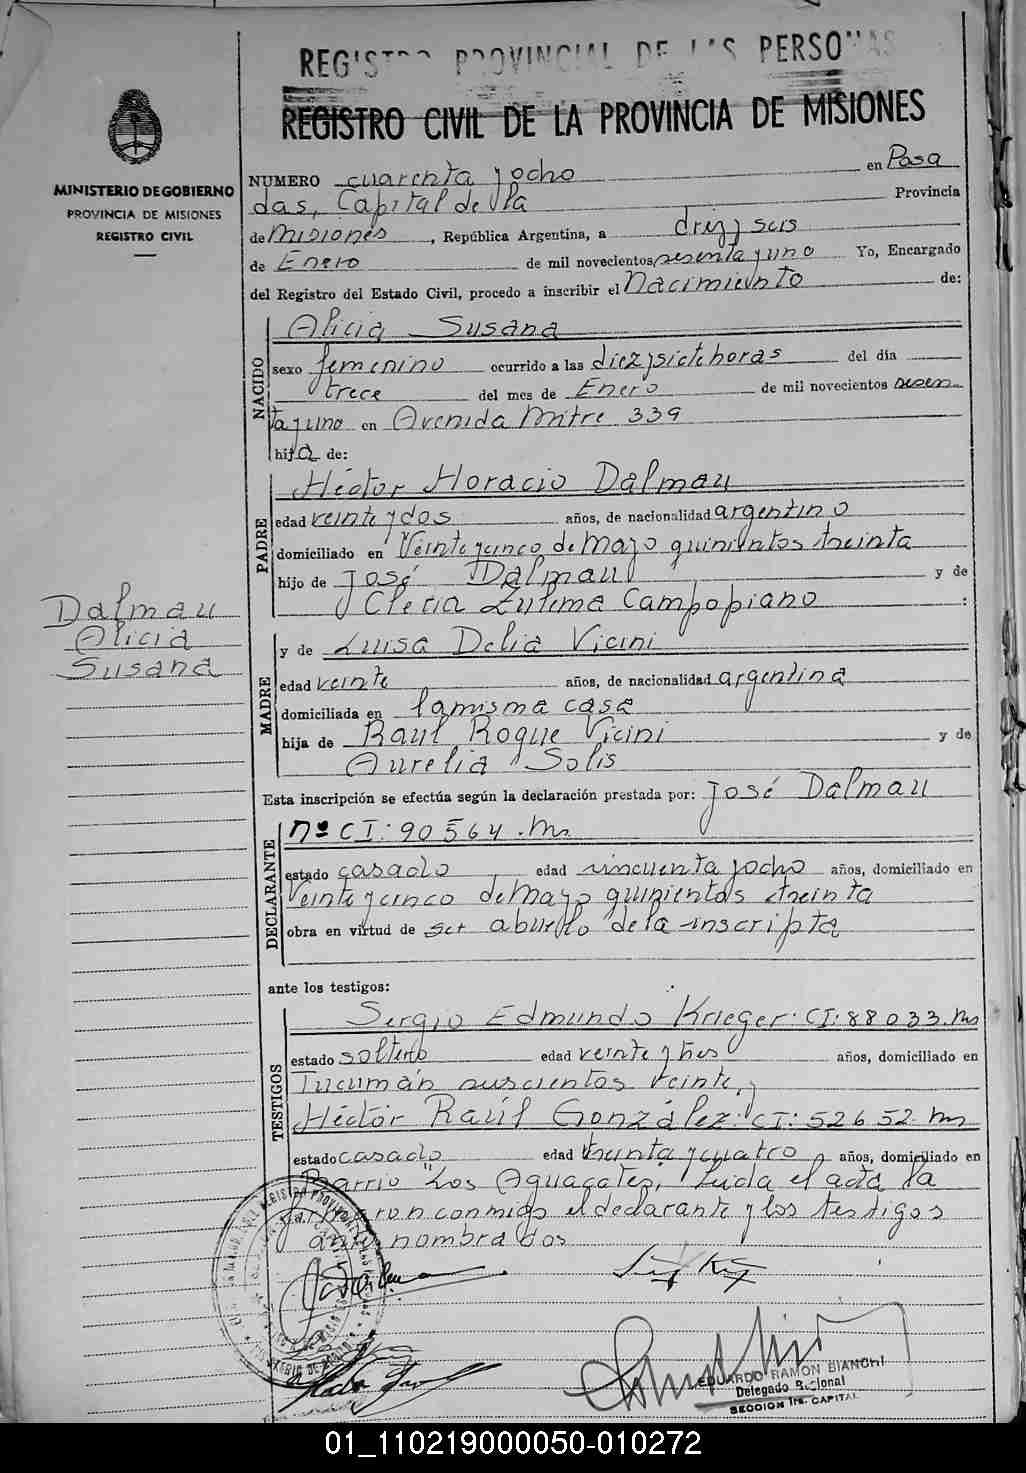 REGISTRO PROVINCIAL DE LAS PERSONAS
REGISTRO CIVIL DE LA PROVINCIA DE MISIONES
MINISTERIO DE GOBIERNO
PROVINCIA DE MISIONES
REGISTRO CIVIL
NUMERO cuarenta y ocho en Posa
das, Capital de la Provincia
de Misiones, República Argentina, a diez y seis
de Enero de mil novecientos sesenta y uno Yo, Encargado
del Registro del Estado Civil, procedo a inscribir el Nacimiento de:
NACIDO
Alicia Susana
sexo femenino ocurrido a las diez y siete horas del día
trece del mes de Enero de mil novecientos sesen
ta y uno en Avenida Mitre 339
hija de:
PADRE
Héctor Horacio Dalmau
edad veinte y dos años, de nacionalidad argentino
domiciliado en Veinte y cinco de Mayo quinientos treinta
hijo de José Dalmau y de
Clelia Zulema Campopiano :
Dalmau
Alicia
Susana
MADRE
y de Luisa Delia Vicini
edad veinte años, de nacionalidad argentina
domiciliada en la misma casa
hija de Raúl Roque Vicini y de
Aurelia Solis
Esta inscripción se efectúa según la declaración prestada por: José Dalmau
DECLARANTE
nº CI: 90564. Ms
estado casado edad cincuenta y ocho años, domiciliado en
Veinte y cinco de Mayo quinientos treinta
obra en virtud de ser abuelo de la inscripta
ante los testigos:
TESTIGOS
Sergio Edmundo Krieger: CI: 88033. Ms
estado soltero edad veinte y tres años, domiciliado en
Tucumán doscientos veinte, y
Héctor Raúl González: CI: 52652. Ms
estado casado edad treinta y cuatro años, domiciliado en
Barrio "Los Aguacates, Leída el acta la
firmaron conmigo el declarante y los testigos
ante nombrados
EDUARDO RAMON BIANCHI
Delegado Regional
SECCION 1ra. CAPITAL
01_110219000050-010272